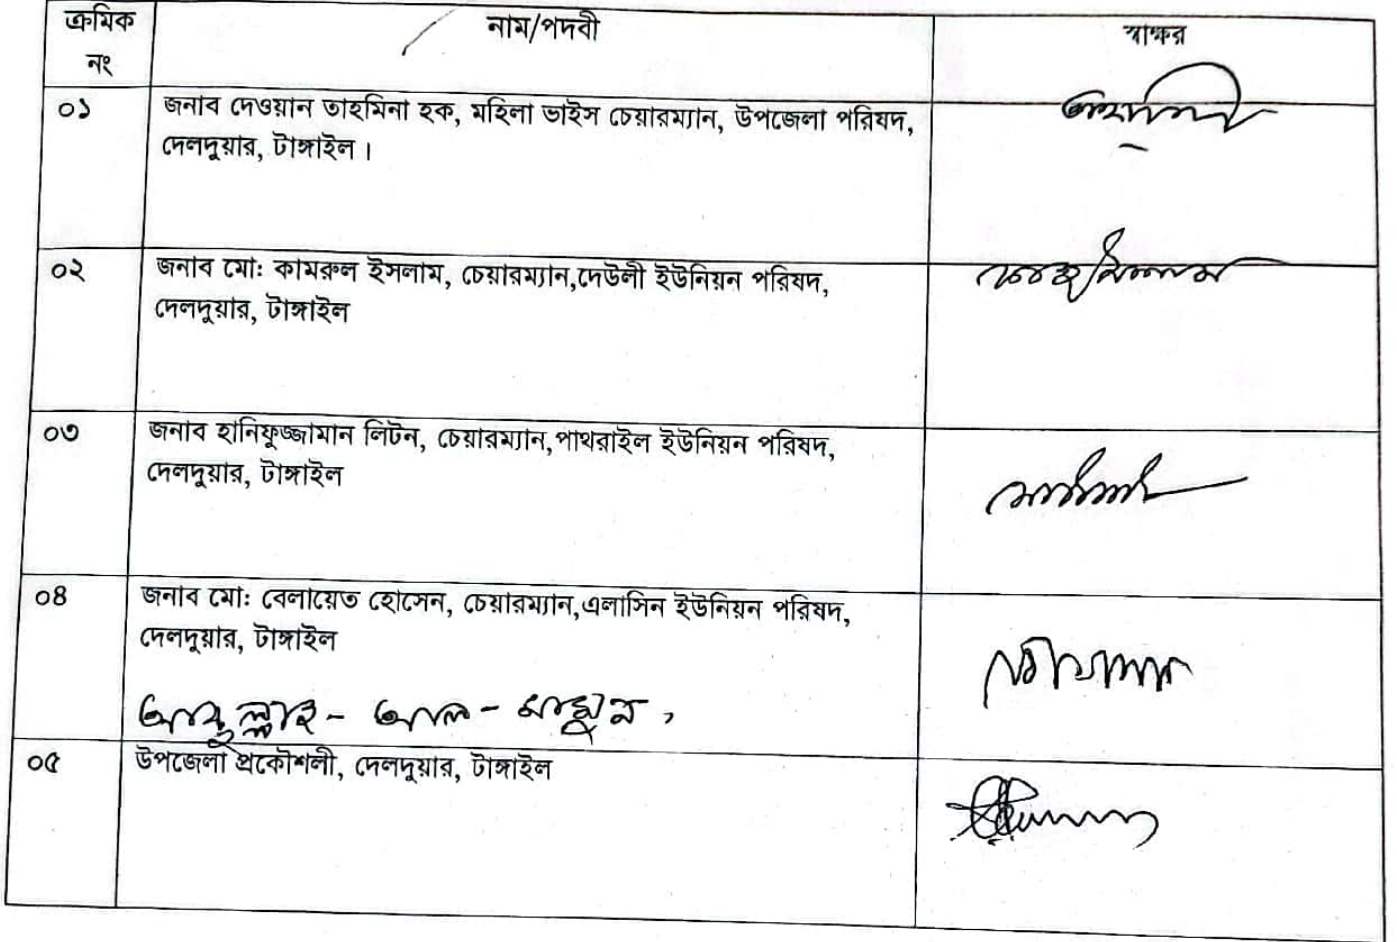 ক্রমিক নং নাম/পদবী স্বাক্ষর
০১ জনাব দেওয়ান তাহমিনা হক, মহিলা ভাইস চেয়ারম্যান, উপজেলা পরিষদ,
দেলদুয়ার, টাঙ্গাইল।
০২ জনাব মোঃ কামরুল ইসলাম, চেয়ারম্যান,দেউলী ইউনিয়ন পরিষদ,
দেলদুয়ার, টাঙ্গাইল
০৩ জনাব হানিফুজ্জামান লিটন, চেয়ারম্যান,পাথরাইল ইউনিয়ন পরিষদ,
দেলদুয়ার, টাঙ্গাইল
০৪ জনাব মোঃ বেলায়েত হোসেন, চেয়ারম্যান,এলাসিন ইউনিয়ন পরিষদ,
দেলদুয়ার, টাঙ্গাইল
আব্দুল্লাহ - আল - মামুন,
০৫ উপজেলা প্রকৌশলী, দেলদুয়ার, টাঙ্গাইল